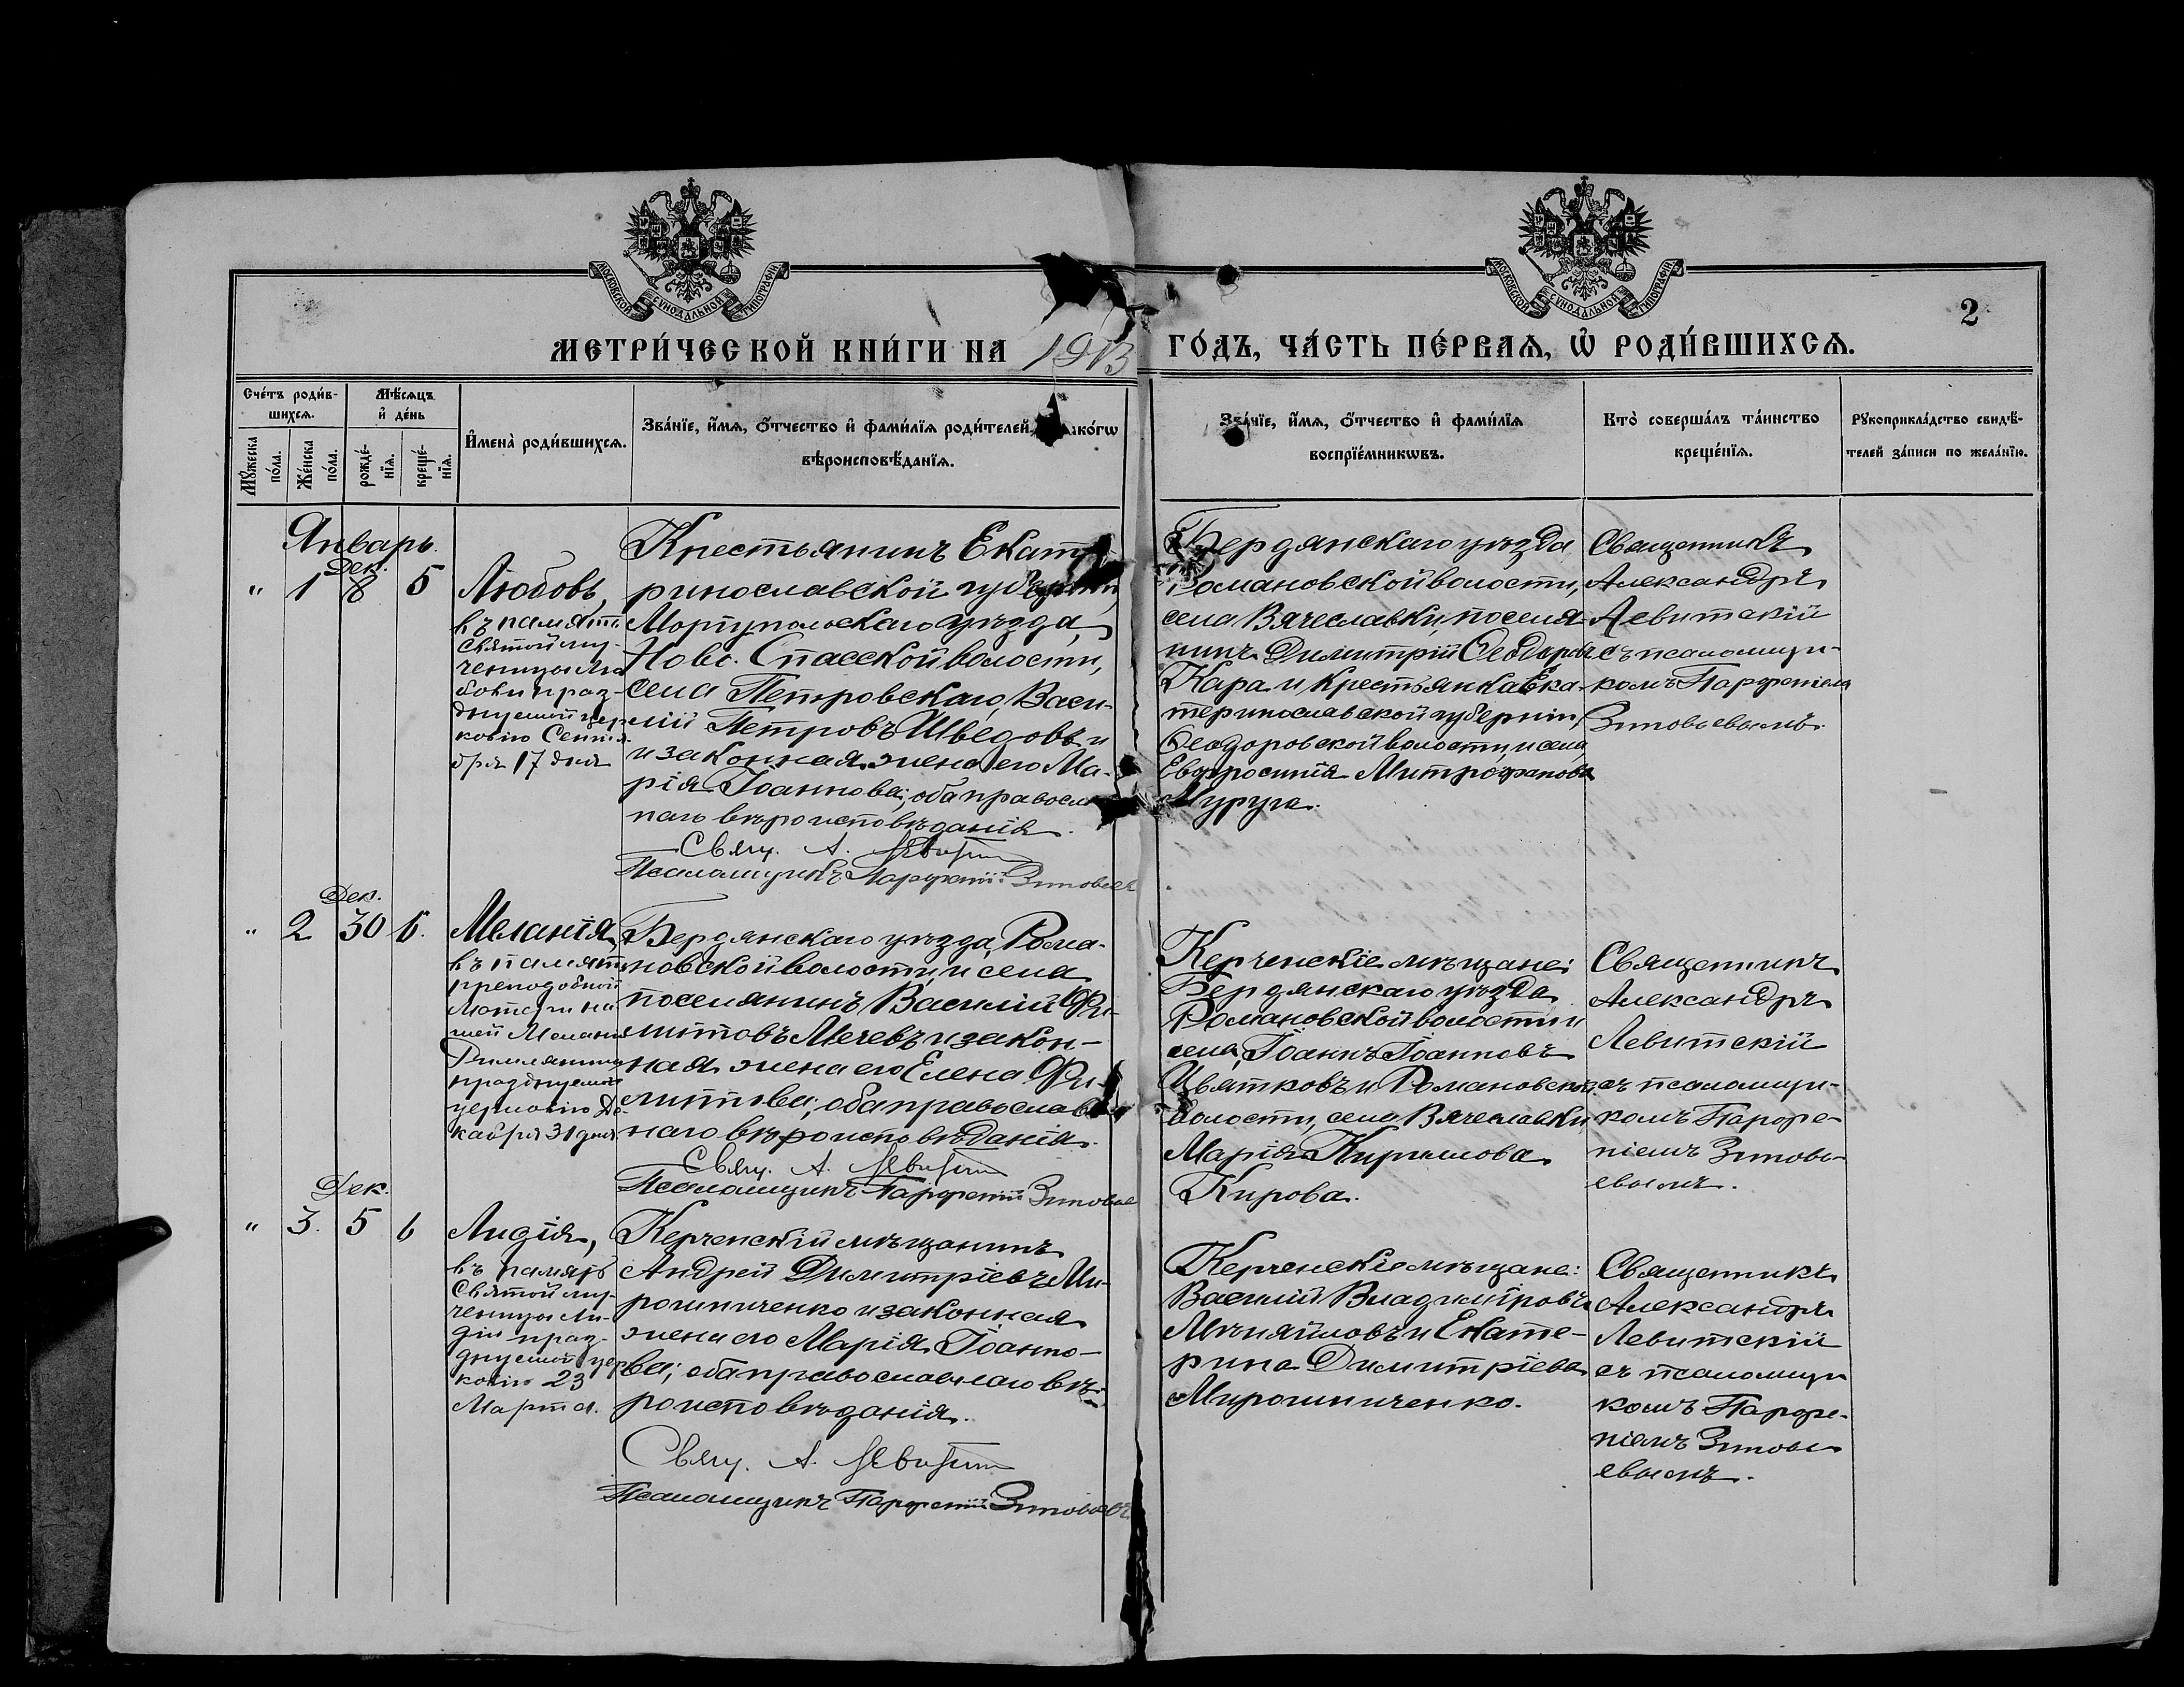 МОСКОВСКОЙ СѴНОДАЛЬНОЙ ТИПОГРАФІИ
МОСКОВСКОЙ СѴНОДАЛЬНОЙ ТИПОГРАФІИ
2
МЕТРИ́ЧЕСКОЙ КНИ́ГИ НА 1913 ГО́ДЪ, ЧА́СТЬ ПЕ́РВАѦ, Ѡ҆ РОДИ́ВШИХСѦ.
Сче́тъ роди́в-
шихсѧ.
Мꙋ́жеска по́ла.
Же́нска по́ла.
Мѣ́сѧцъ
и҆ де́нь
рожде́-
нїѧ.
креще́-
нїѧ.
И҆мена̀ роди́вшихсѧ.
Зва́нїе, и҆́мѧ, ѻ҆́тчество и҆ фами́лїѧ роди́телей, како́гѡ
вѣроисповѣ́данїѧ.
Зва́нїе, и҆́мѧ, ѻ҆́тчество и҆ фами́лїѧ
воспрїе́мникѡвъ.
Кто̀ соверша́лъ та́инство
креще́нїѧ.
Рꙋкоприкла́дство свидѣ́-
телей за́писи по жела́нїю.
Январь.
Дек.
" 1 8 5
Любовь,
въ память
святой му-
ченицы Лю
бови праз-
днуемой цер
ковію Сентя-
бря 17 дня
Крестьянинъ Екате
ринославской губерніи,
Моріупольскаго уѣзда,
Ново-Спасской волости,
села Петровскаго, Васи-
лій Петровъ Шведовъ и
и законная жена его Ма-
рія Іоаннова; оба правосла
наго вѣроисповѣданія.
Свящ. А. Левитскій
Псаломщикъ Парфеній Зиновьев
Бердянскаго уѣзда
Романовской волости,
села Вячеславки, поселя-
нинъ Димитрій Ѳеодоровъ
Кара и крестьянка Ека-
теринославской губерніи,
Ѳеодоровской волости, и села,
Евфросинія Митрофанова
Муруга.
Священникъ
Александръ
Левитскій
съ псаломщи-
комъ Парфеніемъ
Зиновьевымъ.
Дек.
" 2 30 6.
Меланія,
въ память
преподобной
матери на
шей Мелани
Римлянины
празднуемой
церковію Де-
кабря 31 дня
Бердянскаго уѣзда, Рома-
новской волости, и села
поселянинъ Василій Фи-
липповъ Мечевъ и закон-
ная жена его Елена Фи-
липпова; оба православ
наго вѣроисповѣданія.
Свящ. А. Левитскій
Псаломщикъ Парфеній Зиновьев
Керченскіе мѣщане:
Бердянскаго уѣзда
Романовской волости и
села, Іоаннъ Іоанновъ
Цвятковъ и Романовской
волости, села Вячеславки,
Марія Кириллова
Кирова.
Священникъ
Александръ
Левитскій
съ псаломщи-
комъ Парфе-
ніемъ Зиновь-
евымъ.
Дек.
" 3. 5 6
Лидія,
въ память
святой му-
ченицы Ли-
діи праз-
днуемой цер
ковію 23
Марта.
Керченскій мѣщанинъ
Андрей Димитріевъ Ми-
рошниченко и законная
жена его Марія Іоанно-
ва; оба православнаго вѣ-
роисповѣданія.
Свящ. А. Левитскій
Псаломщикъ Парфеній Зиновьевъ.
Керченскіе мѣщане:
Василій Владиміровъ
и Екате-
рина Димитріева
Мирошниченко.
Священникъ
Александръ
Левитскій
съ псаломщи
комъ Парфе-
ніемъ Зиновь
евымъ.